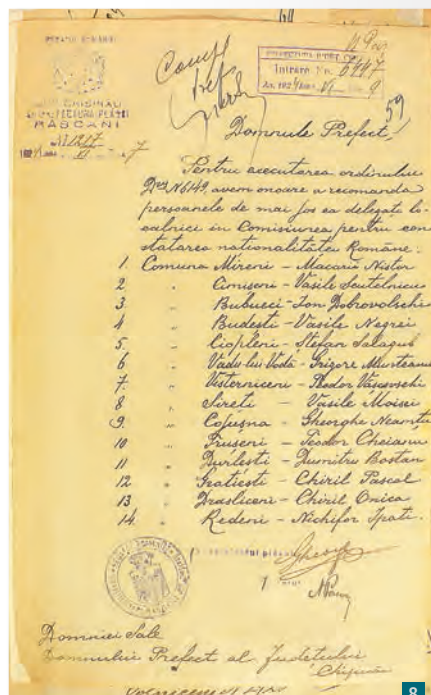 REGATUL ROMÂNIEI
CHIȘINĂU
PREFECTURA PLĂȘII
BĂSCANI
№ 1217
7
PREFECTURA JUD.
Intrare No. 6447
An. 192
59
Domnule Prefect!
Pentru executarea ordinului
Dvs N 6149, avem onoare a recomanda
persoanele de mai jos ca delegați lo-
calnici in Comisiunea pentru con
statarea nationalitatei Române:
1. Comuna Mireni – Macarii Nistor
2 " Cimiseni – Vasile Scutelnicu
3 " Bubueci – Ion Dobrovolschi
4 " Budesti – Vasile Negrei
5. " Ciopleni – Stefan Salagub
6 " Vadu-lui Vodă – Grigore Munteanu
7. " Visterniceni – Teodor
8 " Sireti – Vasile Moisei
9. " Cojușna – Gheorghe Neamțu
10 " Truseni – Teodor Cheianu
11 " Durlesti – Dumitru Bostan
12 " Gratiesti – Chiril Pascal
13 " Drasliceni – Chiril Onica
14. " Redeni – Nichifor Ipati.
Domniei Sale
Domnului Prefect al Judetului
Chișinău
8